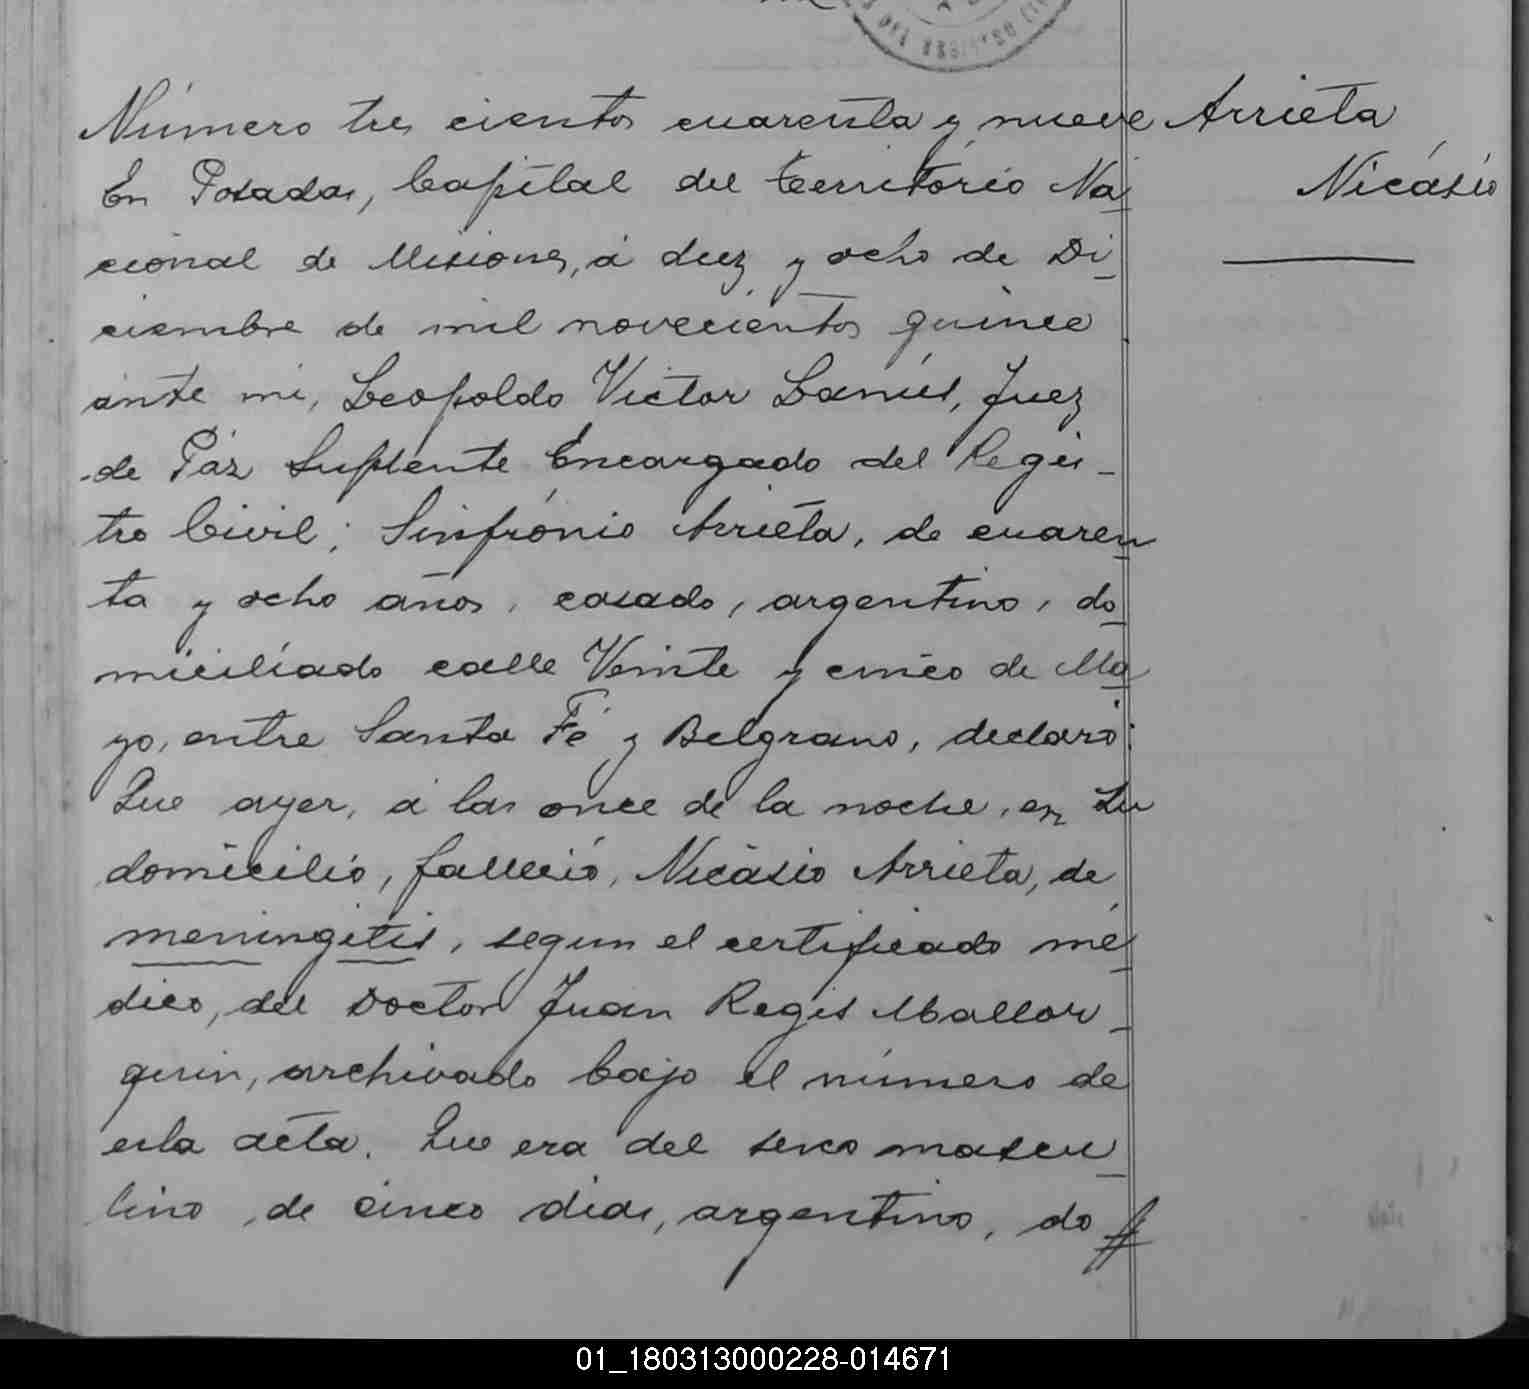 Número tres cientos cuarenta y nueve
Arrieta
Nicásio
En Posadas, Capital del territorio Na
cional de Misiones, á diez y ocho de Di
ciembre de mil novecientos quince
ante mi, Leopoldo Victor Lanús, Juez
de Páz Suplente Encargado del Regis-
tro Civil; Sinfrónio Arrieta, de cuaren
ta y ocho años, casado, argentino, do
miciliado calle Veinte y cinco de Ma
yo, entre Santa Fé y Belgrano, declaró:
Que ayer, á las once de la noche, en su
domicilio, falleció, Nicásio Arrieta, de
meningitis, segun el certificado mé
dico, del Doctor Juan Regis Mallor-
quin, archivado bajo el número de
esta acta. Que era del sexo mascu
lino, de cinco dias, argentino, do
01_180313000228-014671